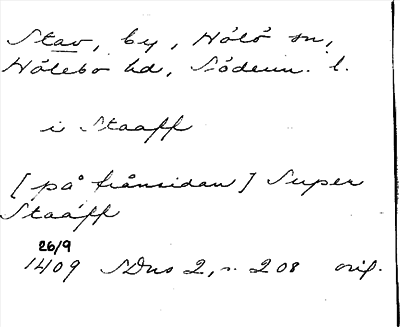 Stav, by, Hölö sn,
Hölebo hd, Söderm. l.
i Staaff
[på frånsidan] Super
Staaff
26/9
1409 SDns 2, s. 208 orig.